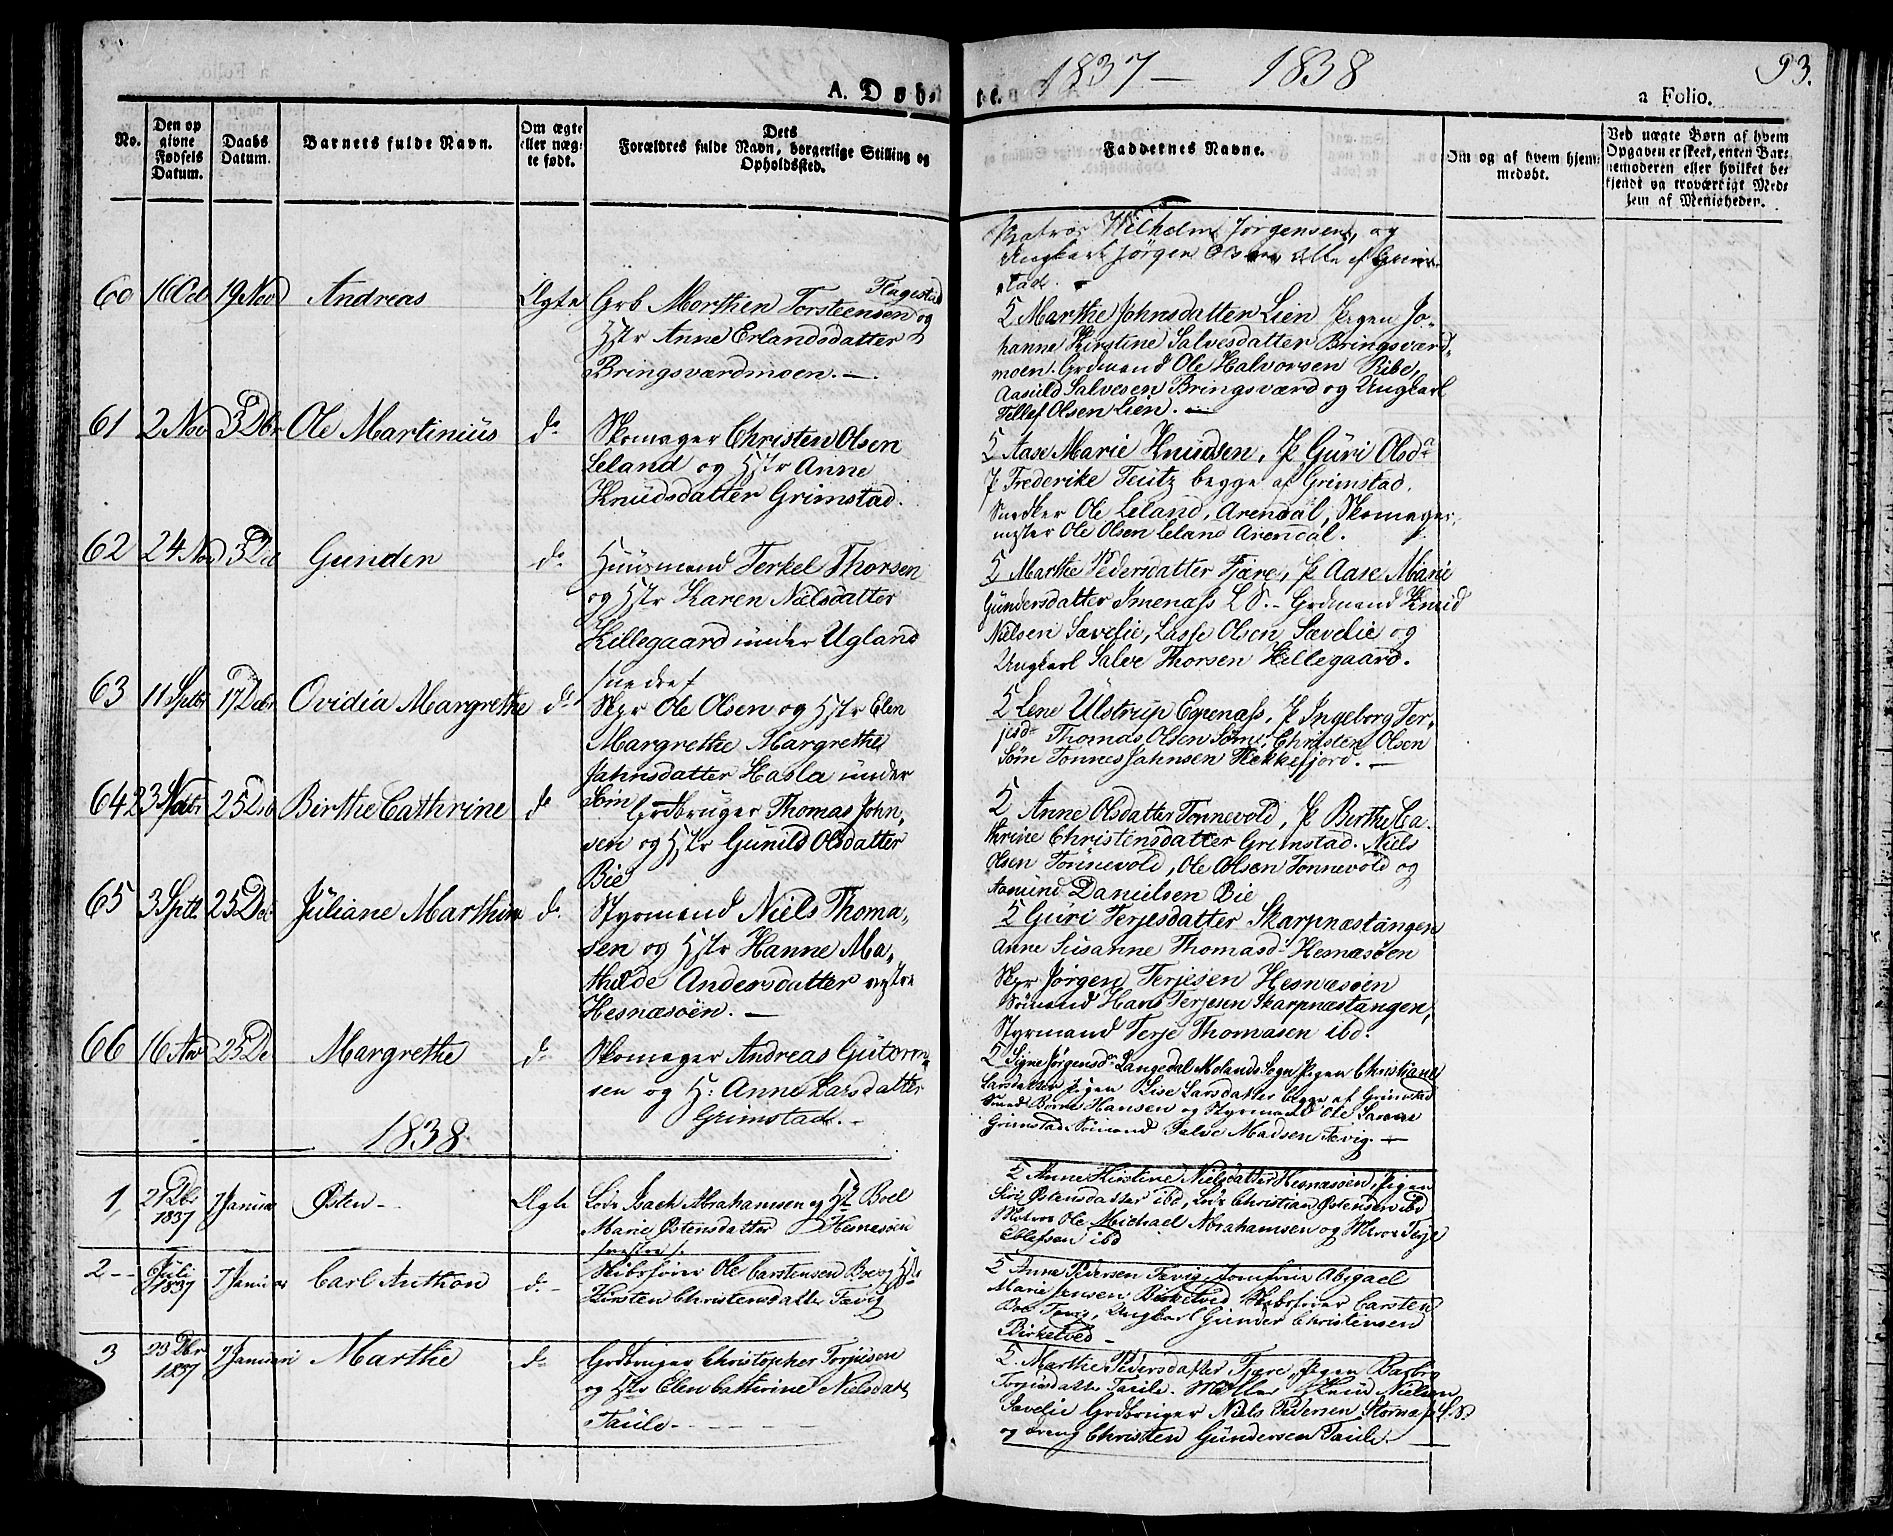 A. Døbte.
1837 — 1838
93.
a Folio.
No.
Den op
givne
Fødsels
Datum.
Daabs
Datum.
Barnets fulde Navn.
Om ægte
eller uæg-
te født.
Dets
Forældres fulde Navn, borgerlige Stilling og
Opholdssted.
Faddernes Navne.
Om og af hvem hjem-
medøbt.
Ved uægte Børn af hvem
Opgaven er skeet, enten Bar-
nemoderen eller hvilket be-
kjendt og troværdigt Med-
lem af Menigheden.
Wilhelm Jørgensen, og
Ungkarl Jørgen Olsen alle af Grim-
stad.
60 16 Oct 19 Nov Andreas Ægte Grb Morthen Torsteensen Flagestad og
Hstr Anne Erlandsdatter
Bringsværdmoen. —
5 Marthe Johnsdatter Lien Pigen Jo-
hanne Kirstine Salvesdatter Bringsværd-
moen. Grdmand Ole Halvorsen Ribe,
Aasuld Salvesen Bringsværd og Ungkarl
Tellef Olsen Lien. —
61 2 Nov 3 Dbr Ole Martinius do Skomager Christen Olsen
Leland og Hstr Anne
Knudsdatter Grimstad.
5 Aase Marie Knudsen, P Guri Olsd
P Frederike Teutz begge af Grimstad.
Snedker Ole Leland, Arendal, Skomager-
mester Ole Olsen Leland Arendal.
62 24 Nov 3 De Gunder do Huusmand Terkel Thorsen
og Hstr Karen Nielsdatter
Killegaard under Ugland
5 Marthe Pedersdatter Fjære, P Aase Marie
Gundersdatter Smenæss L S. - Grdmand Knud
Nielsen Sævelie, Lasse Olsen Sævelie og
Ungkarl Salve Thorsen Killegaard.
63 11 Septbr 17 Decbr Ovidia Margrethe do Skpr Ole Olsen og Hstr Elen
Margrethe Margrethe
Jahnsdatter Hasla under
Søm
5 Lene Ulstrup Egenæss, P Ingeborg Ter-
jesd Thomas Olsen Søm, Christen Olsen
Søm Tønnes Jahnsen Hekkefjord. —
64 23 25 Birthe Cathrine do Grdbruger Thomas John-
sen og Hstr Gunild Olsdatter
Bie
5 Anne Olsdatter Tønnevold, P Berthe Ca-
thrine Christensdatter Grimstad. Niels
Olsen Tønnevold, Ole Olsen Tønnevold og
Aamund Danielsen Bie
65 3 Septbr 25 Deb Juliane Marthine do Styrmand Niels Thoma-
sen og Hstr Hanne Ma-
thilde Andersdatter vestre
Hesnæsøen. —
5 Guri Terjesdatter Skarpnæstangen
Anne Susanne Thomasd Hesnæsøen
Skpr Jørgen Terjesen Hesnæsøen
Sømand Hans Terjesen Skarpnæstangen,
Styrmand Terje Thomasen ibd.
66 16 Nov 25 De Margrethe do Skomager Andreas Gutorm-
sen og H: Anne Larsdatter
Grimstad. -
5 Signe Jørgensd Langedal Molands Sogn Pigen Christiane
Larsdatter Pigen Lise Larsdatter begge af Grimstad
Børre Hansen og Styrmand Ole Larsen
Grimstad Sømand Salve Madsen Fævig. —
1838.
1, 27 Dbr 1837 7 Januar Østen - Ægte Lods Bach Abrahamsen og Hst Boel
Marie Østensdatter Hesnæsøen
vestre
5 Anne Kirstine Nielsdatter Hesnæsøen, Pigen
Siri Østensdatter ibd, Lods Christian Østensen ibd
Matros Ole Michael Abrahamsen og Matros Terje
Ellefsen ibd
2 - - 6 Juli 1837 7 Januar Carl Anthon do - Skibsfører Ole Carstensen Boe og Hstr
Kirsten Christensdatter Fævig
5 Anne Pedersen Fævig, Jomfrue Abigael
Marie Jensen Birketved Skibsfører Carsten
Boe Fævig, Ungkarl Gunder Christensen
Birketved -
3 23 Dbr 1837 7 Januari Marthe do Grdbruger Christopher Torjusen
og Hstr Elen Cathrine Nielsdatr
Taule. - - -
5. Marthe Pedersdatter Fjære, Pigen Barbro
Torjusdatter Taule. Møller Knud Nielsen
Sævelie Grdbruger Niels Pedersen L. S.
og dreng Christen Gundersen Taule